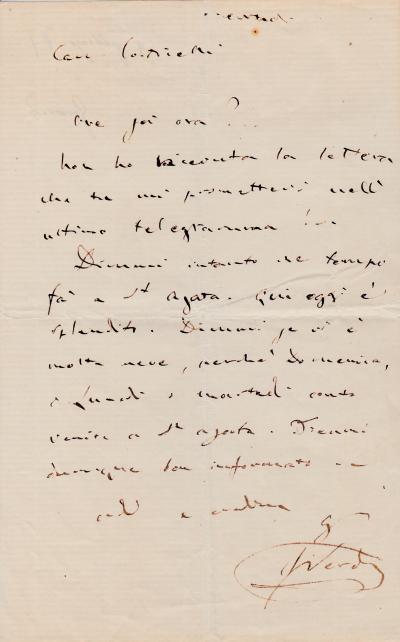 Caro Corticelli
Che fai ora?..
Non ho ricevuta la lettera
che tu mi promettevi nell'
ultimo telegramma!..
Dimmi intanto che tempo
fà a St Agata. Qui oggi è
splendito. Dimmi se vi è
molta neve, perchè Domenica,
o Lunedì o martedì conto
venire a St Agata. Tienmi
dunque ben informato
addio addio
G Verdi